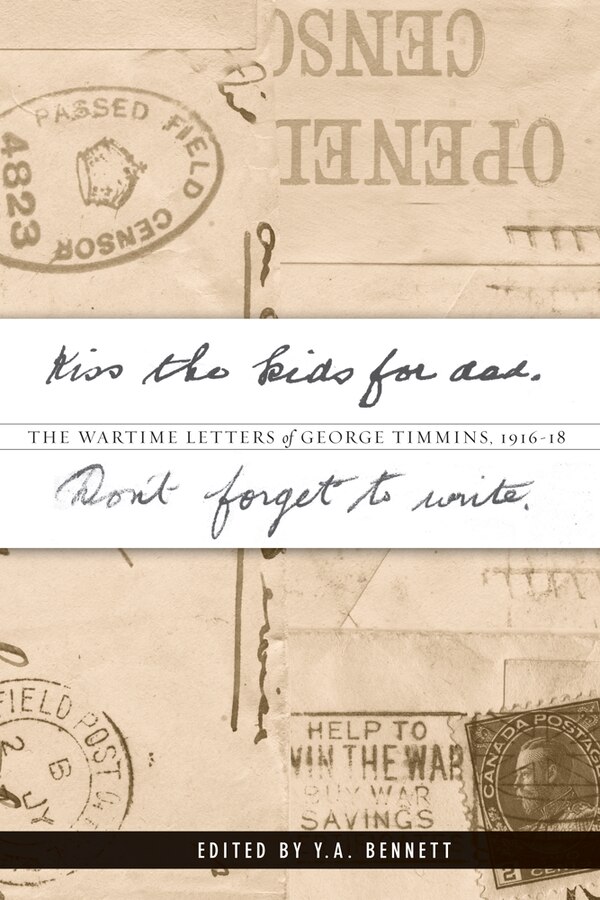 CENSO
OPENE
PASSED FIELD
CENSOR
4823
Kiss the kids for dad.
THE WARTIME LETTERS of GEORGE TIMMINS, 1916-18
Don't forget to write.
FIELD POST
HELP TO
WIN THE WAR
BUY WAR
SAVINGS
CANADA POSTAGE
2 CEN
EDITED BY Y.A. BENNETT